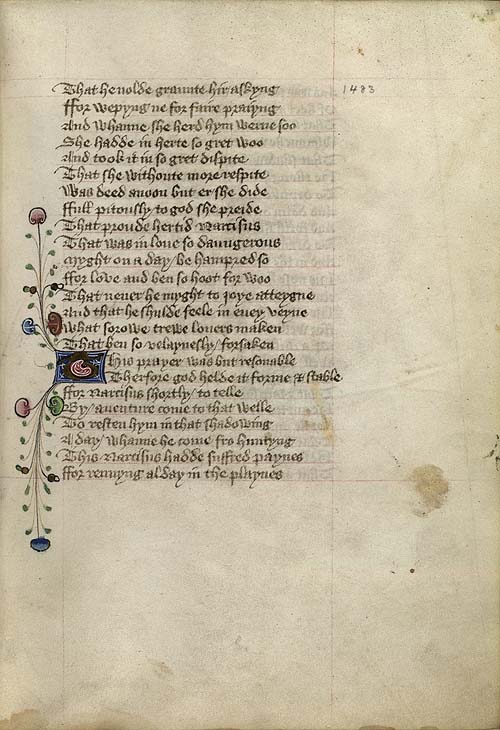 1483
That he nolde graunte hir askyng
ffor wepyng ne for faire praiyng
And whanne she herd hym werne soo
She hadde in herte so gret woo
And took it in so gret dispite
That she withoute more respite
Was deed anoon but er she dide
ffull pitously to god she preide
That proude hertid Narcisus
That was in loue so daungerous
Myght on a day be hampred so
ffor love and ben so hoot for woo
That never he myght to joye atteygne
And that he shulde feele in euery veyne
What sorowe trewe lovers maken
That ben so velaynesly forsaken
This prayer was but resonable
Therfore god helde it ferme & stable
ffor Narcisus shortly to telle
By aventure come to that welle
To resten hym in that shadowing
A day whanne he come fro huntyng
This Narcisus hadde suffred paynes
ffor rennyng alday in the playnes